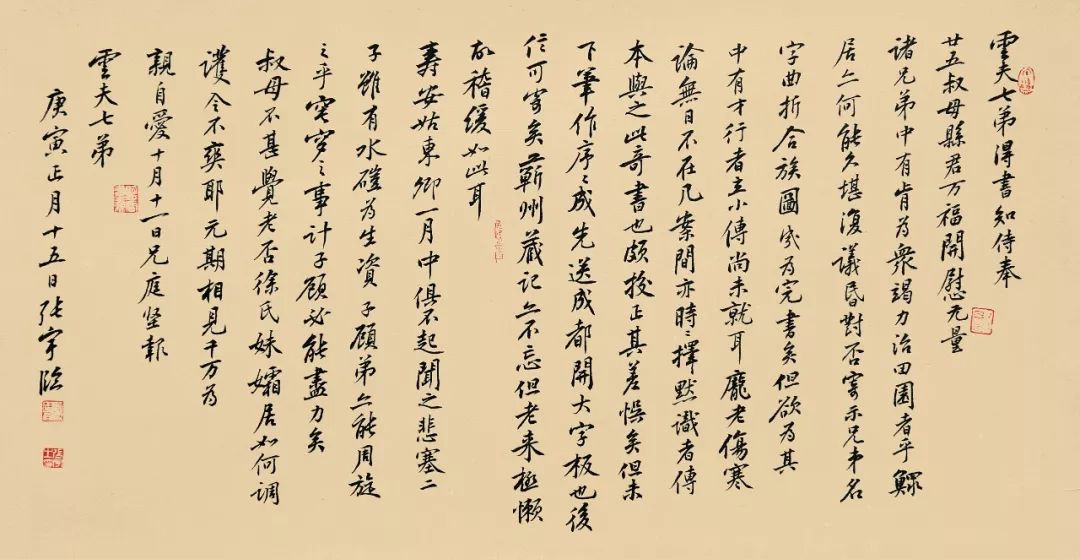 雲夫七弟得書知侍奉
廿五叔母縣君万福開慰无量
諸兄弟中有肯為衆竭力治田園者乎鰥
居亦何能久堪復議昏對否寄示兄弟名
字曲折合族圖成為完書矣但欲為其
中有才行者立小傳尚未就耳龐老傷寒
論無日不在几案間亦時〻擇默識者傳
本與之此奇書也頗挍正其差悮矣但未
下筆作序〻成先送成都開大字板也後
信可寄矣蘄州藏記亦不忘但老来極懶
故稽緩如此耳
壽安姑東卿一月中俱不起聞之悲塞二
子雖有水磑為生資子顧弟亦能周旋
之乎窀穸之事計子顧必能盡力矣
叔母不甚覺老否徐氏妹孀居如何調
護令不爽耶元期相見千万為
親自愛十月十一日兄庭堅報
雲夫七弟
庚寅正月十五日張宇臨